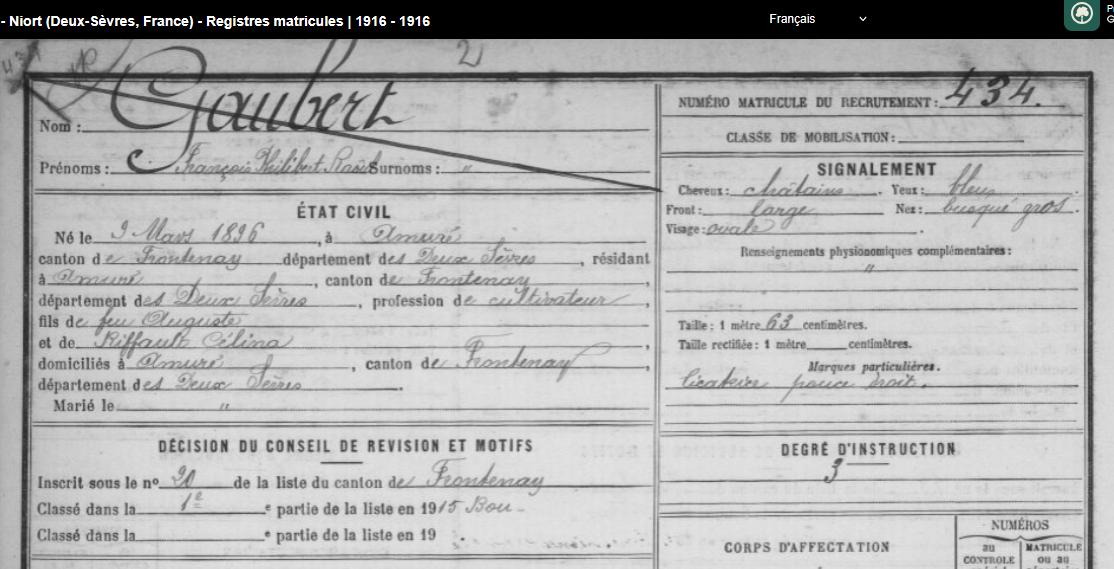 - Niort (Deux-Sèvres, France) - Registres matricules | 1916 - 1916
Français
2
Nom : Gaubert
Prénoms : François Philibert Raoul Surnoms : "
NUMÉRO MATRICULE DU RECRUTEMENT : 434.
CLASSE DE MOBILISATION :
SIGNALEMENT
Cheveux : châtains . Yeux : bleus .
Front : large Nez : busqué gros .
Visage : ovale .
Renseignements physionomiques complémentaires :
"
Taille : 1 mètre 63 centimètres.
Taille rectifiée : 1 mètre centimètres.
Marques particulières.
pouce droit.
DEGRÉ D'INSTRUCTION
3
CORPS D'AFFECTATION
NUMÉROS
au CONTROLE
MATRICULE ou au
ÉTAT CIVIL
Né le 9 Mars 1896 , à Amuré
canton de Frontenay département des Deux Sèvres , résidant
à Amuré , canton de Frontenay ,
département des Deux Sèvres , profession de cultivateur ,
fils de feu Auguste
et de Riffault Célina ,
domiciliés à Amuré , canton de Frontenay ,
département des Deux Sèvres .
Marié le "
DÉCISION DU CONSEIL DE REVISION ET MOTIFS
Inscrit sous le no 20 de la liste du canton de Frontenay
Classé dans la 1e e partie de la liste en 1915 Bon -
Classé dans la e partie de la liste en 19 .